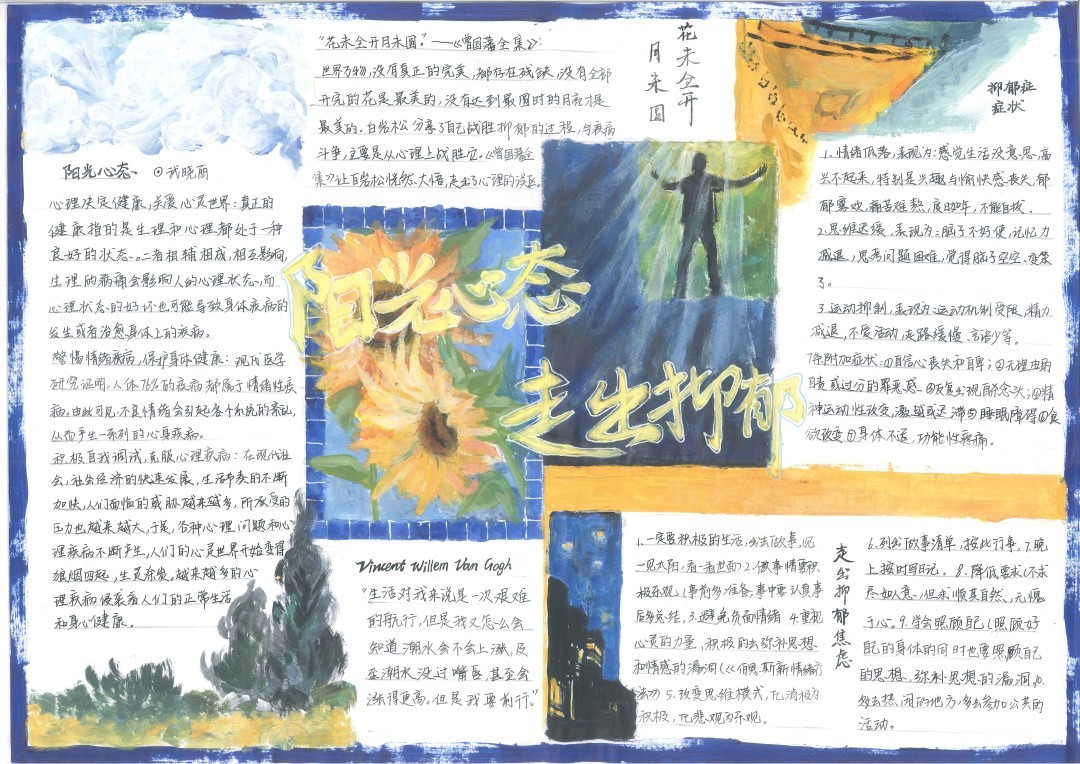 阳光心态
走出抑郁
阳光心态 ⊙ 我晓丽
心理决定健康,关爱心灵世界:真正的
健康指的是生理和心理都处于一种
良好的状态。二者相辅相成,相互影响,
生理的病痛会影响人的心理状态,而
心理状态的好坏也可能导致身体疾病的
发生或者治愈身体上的疾病。
警惕情绪疾病,保护身体健康:现代医学
研究证明,人体76%的疾病都属于情绪性疾
病。由此可见,不良情绪会引起各个系统的紊乱,
从而产生一系列的心身疾病。
积极自我调试,克服心理疾病:在现代社
会,社会经济的快速发展,生活节奏的不断
加快,人们面临的威胁越来越多,所承受的
压力也越来越大,于是,各种心理问题和心
理疾病不断产生,人们的心灵世界开始变得
狼烟四起,生灵涂炭。越来越多的心
理疾病侵袭着人们的正常生活
和身心健康。
“花未全开月未圆。”——《曾国藩全集》:
世界万物,没有真正的完美,都存在残缺,没有全部
开完的花是最美的,没有达到最圆时的月亮才是
最美的。白岩松分享了自己战胜抑郁的过程,与疾病
斗争,主要是从心理上战胜它。《曾国藩全
集》让白岩松恍然大悟,走出了心理的误区。
花未全开
月未圆
抑郁症
症状
1.情绪低落,表现为:感觉生活没意思,高
兴不起来,特别是兴趣与愉快感丧失,郁
郁寡欢,痛苦难熬,度日如年,不能自拔。
2.思维迟缓,表现为:脑子不好使,记忆力
减退,思考问题困难,觉得脑子空空、变笨
了。
3.运动抑制,表现为:运动机制受限,精力
减退,不爱活动,走路缓慢、言语少等。
附加症状:①自信心丧失和自卑;②无理由的自
责或过分的罪恶感③反复出现自杀念头;④精
神运动性改变,激越或迟滞⑤睡眠障碍⑥食
欲改变⑦身体不适,功能性疼痛。
Vincent Willem Van Gogh
“生活对我来说是一次艰难
的航行,但是我又怎么会
知道潮水会不会上涨,及
至潮水没过嘴唇,甚至会
涨得更高。但是我要前行”
1.一定要积极的生活,出去做事,见
一见太阳,看一看世面)2.做事情要积
极乐观,(事前多准备,事中要认真事
后多总结。3.避免负面情绪 4.重视
心灵的力量,积极的去弥补思想
和情感的漏洞(《伯恩斯新情绪疗
法》)5.改变思维模式,化消极为
积极,化悲观为乐观。
走出抑郁焦虑
6.列出做事清单,按此行事,7.晚
上按时写日记。8.降低要求(不求
尽如人意,但求顺其自然、无愧
于心。9.学会照顾自己(照顾好
自己的身体的同时也要照顾自己
的思想,弥补思想的漏洞)10.
多去热闹的地方,多去参加公共的
活动。